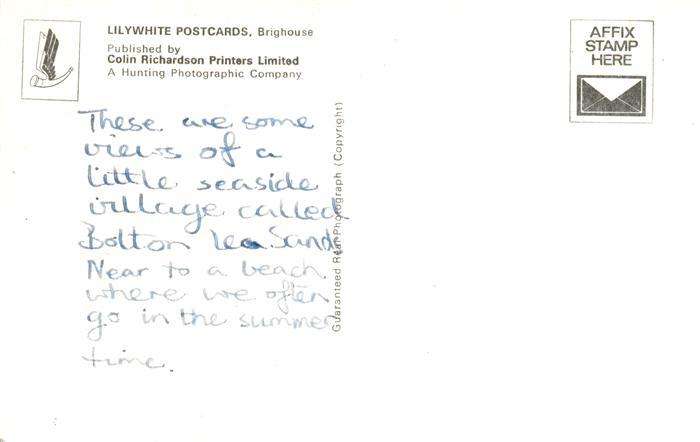 LILYWHITE POSTCARDS, Brighouse
Published by
Colin Richardson Printers Limited
A Hunting Photographic Company
AFFIX
STAMP
HERE
These are some
views of a
little seaside
village called
Bolton Lea Sands
Near to a beach
where we often
go in the summer
time.
Guaranteed Real Photograph (Copyright)